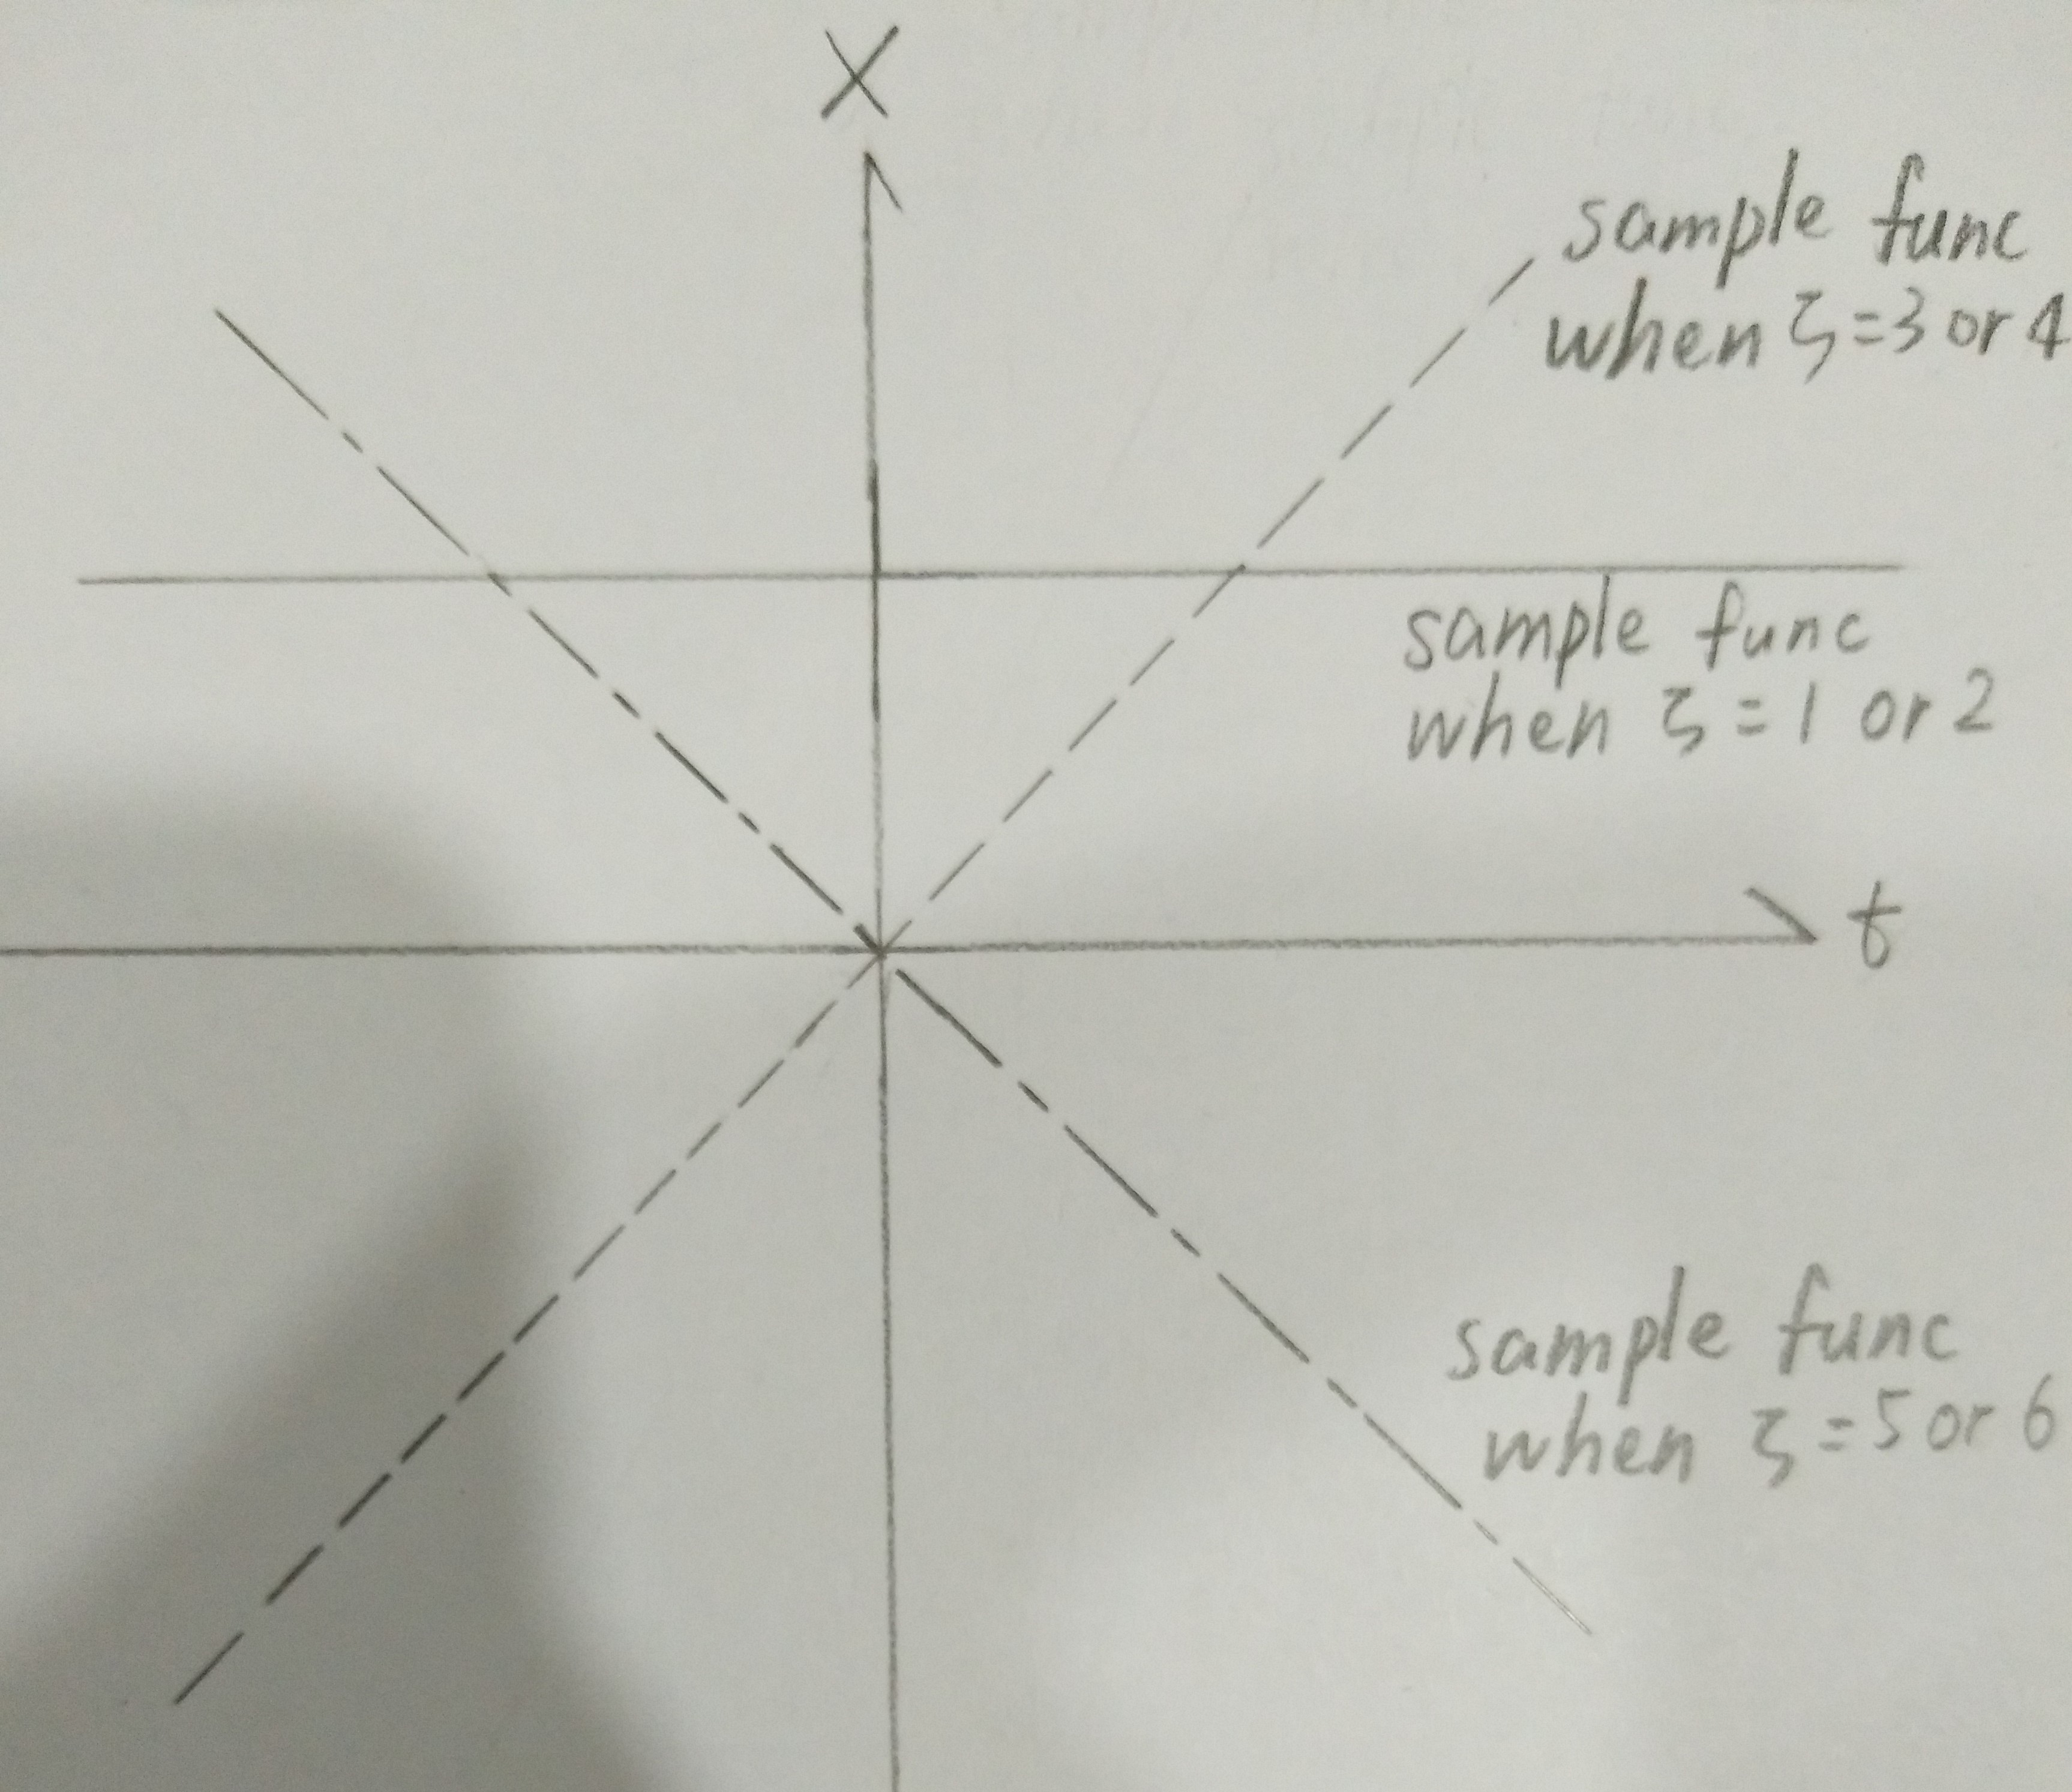 X
sample func
when ζ=3 or 4
sample func
when ζ=1 or 2
t
sample func
when ζ=5 or 6